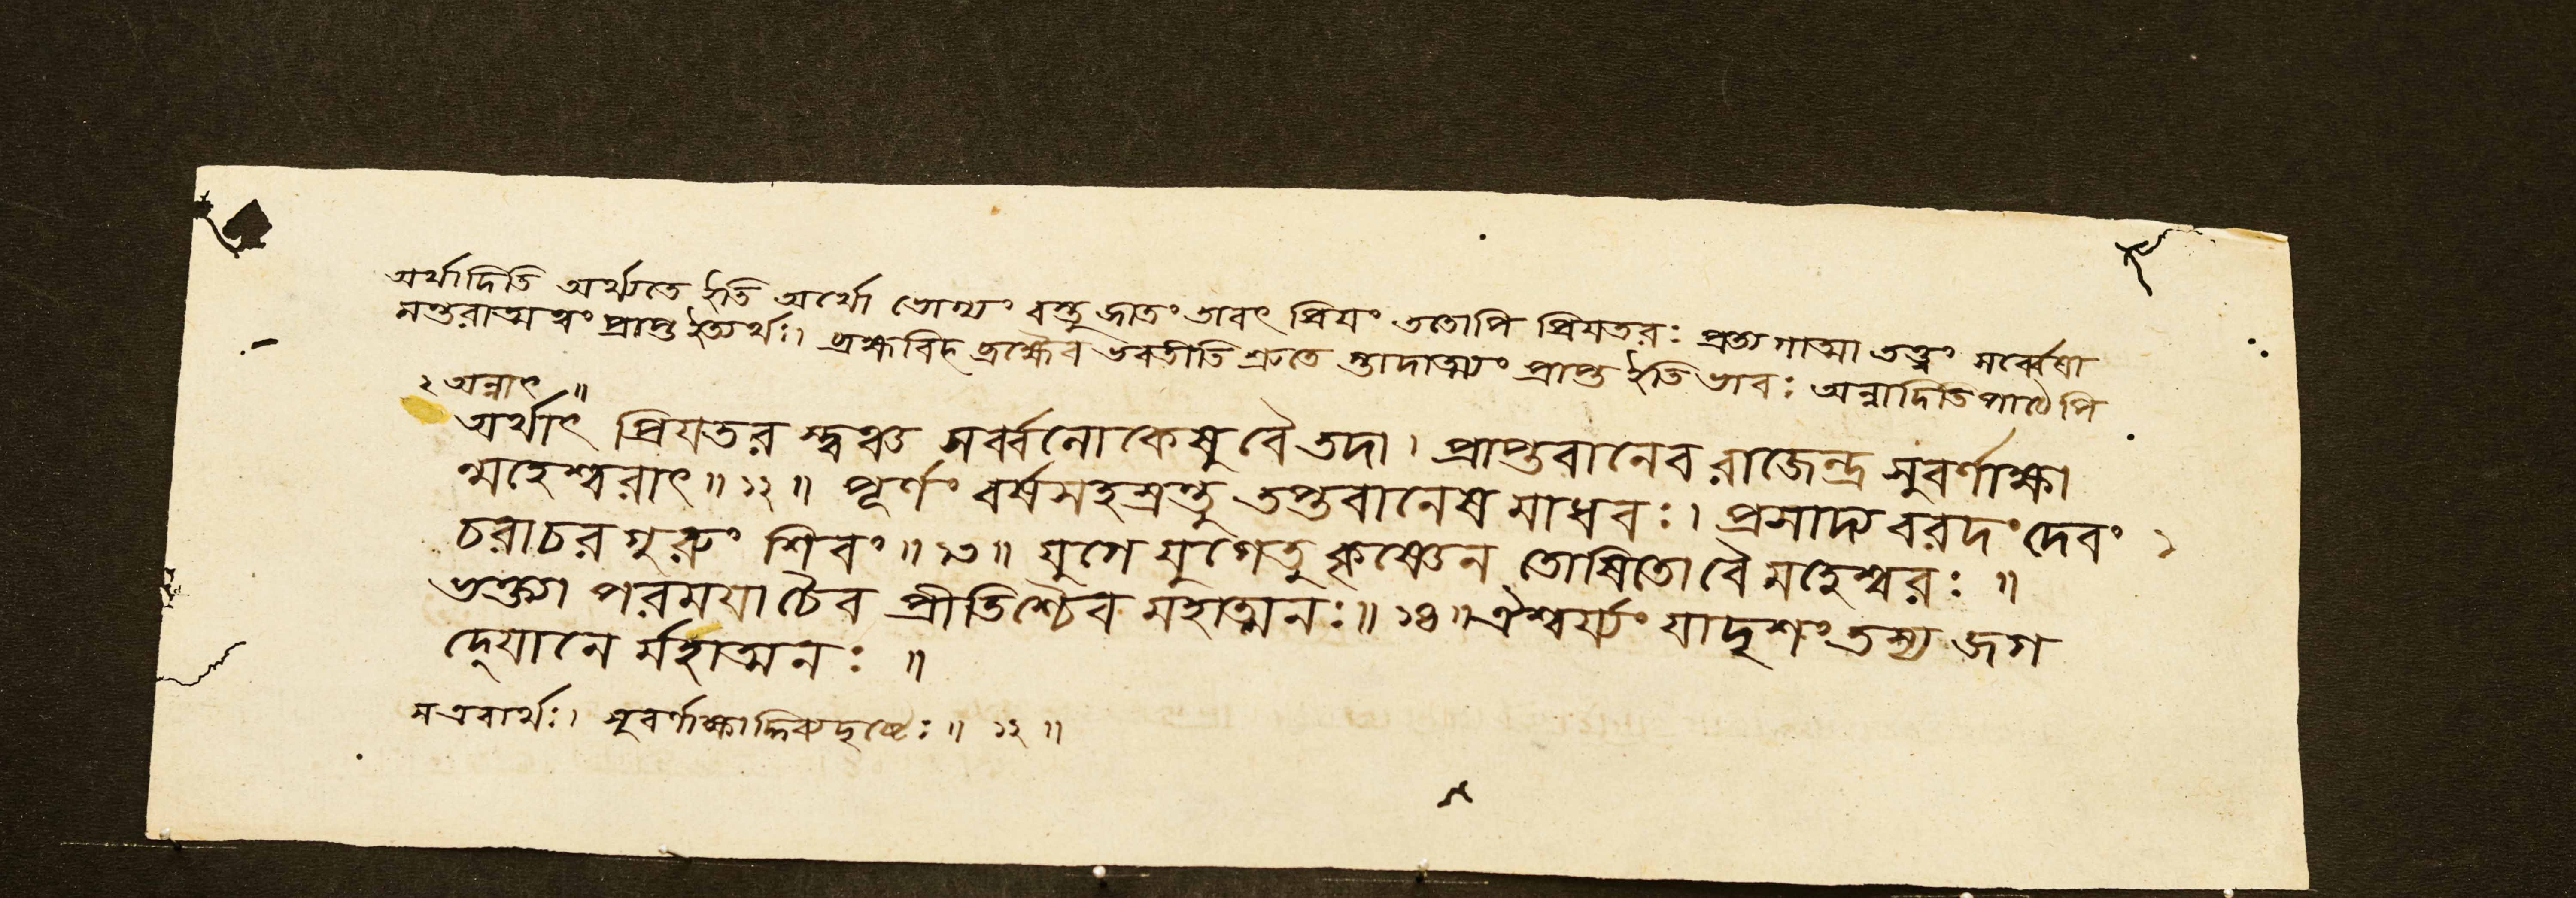 অর্থাদিতি অর্থ্যতে ইতি অর্থো ভোগ্যং বস্তু জাতং তাবৎ প্রিয়ং ততোপি প্রিয়তরঃ প্রত্যগাত্মা তত্ত্বং সর্ব্বেষা
মন্তরাত্মত্বং প্রাপ্ত ইত্যর্থঃ। ব্রহ্মবিদ্ ব্রহ্মৈব ভবতীতি শ্রুতে স্তাদাত্ম্যং প্রাপ্ত ইতি ভাবঃ অন্নাদিতি পাঠেপি
২ অন্নাৎ ॥
অর্থাৎ প্রিয়তর ত্বঞ্চ সর্ব্বলোকেষু বৈ তদা। প্রাপ্তবানেব রাজেন্দ্র সুবর্ণাক্ষা
ন্মহেশ্বরাৎ॥ ১২॥ পূর্ণং বর্ষসহস্রন্তু তপ্তবানেষ মাধবঃ। প্রসাদ্য বরদং দেবং
চরাচর গুরুং শিবং॥ ১৩॥ যুগে যুগে তু কৃষ্ণেন তোষিতো বৈ মহেশ্বরঃ ॥
ভক্ত্যা পরময়া চৈব প্রীতিশ্চৈব মহাত্মনঃ॥ ১৪॥ ঐশ্বর্য্যং যাদৃশং তস্য জগ
দ্যোনে র্মহাত্মনঃ ॥
স এবার্থঃ। সুবর্ণাক্ষা দৃষ্টেঃ॥ ১২॥